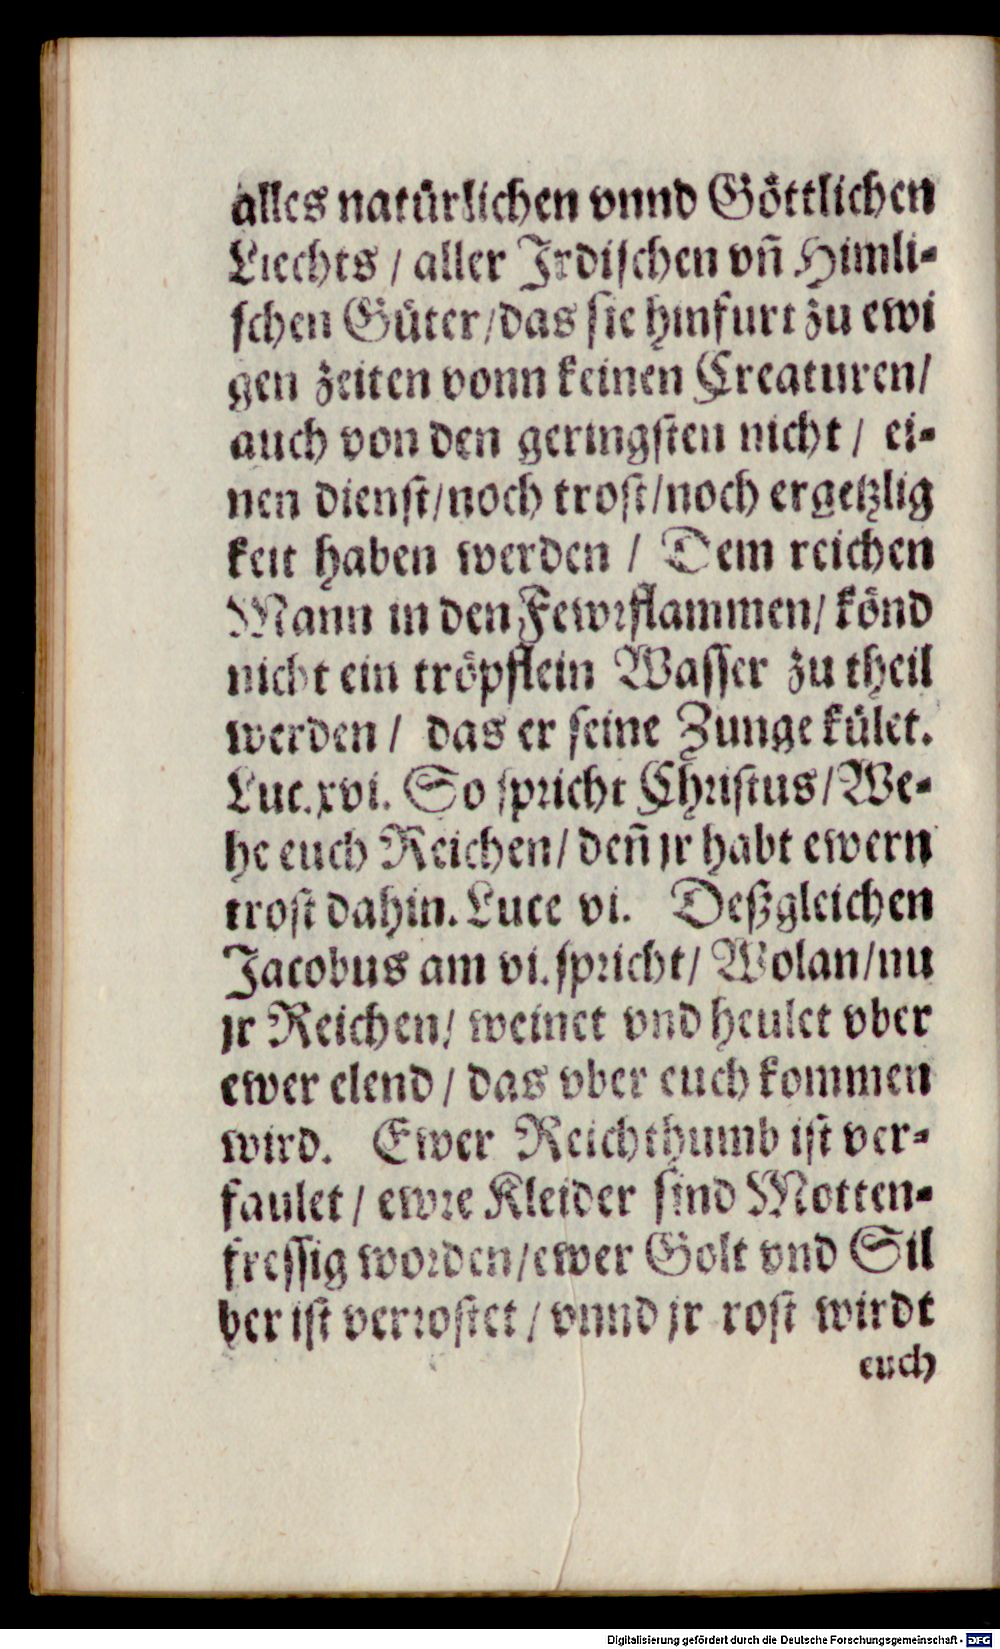 alles natürlichen vnnd Göttlichen
Liechts / aller Jrdischen vñ Himli-
schen Güter/das sie hinfurt zu ewi
gen zeiten vonn keinen Creaturen/
auch von den geringsten nicht / ei-
nen dienst/noch trost/noch ergetzlig
keit haben werden / Dem reichen
Mann in den Fewrflammen/ könd
nicht ein tröpflein Wasser zu theil
werden / das er seine Zunge kület.
Luc.xvi. So spricht Christus/We-
he euch Reichen/ deñ jr habt ewern
trost dahin. Luce vi. Deßgleichen
Jacobus am vi. spricht/ Wolan/nu
jr Reichen/ weinet vnd heulet vber
ewer elend / das vber euch kommen
wird. Ewer Reichthumb ist ver-
faulet / ewre Kleider sind Motten-
fressig worden/ewer Golt vnd Sil
ber ist verrostet / vnnd jr rost wirdt
euch
Digitalisierung gefördert durch die Deutsche Forschungsgemeinschaft - DFG